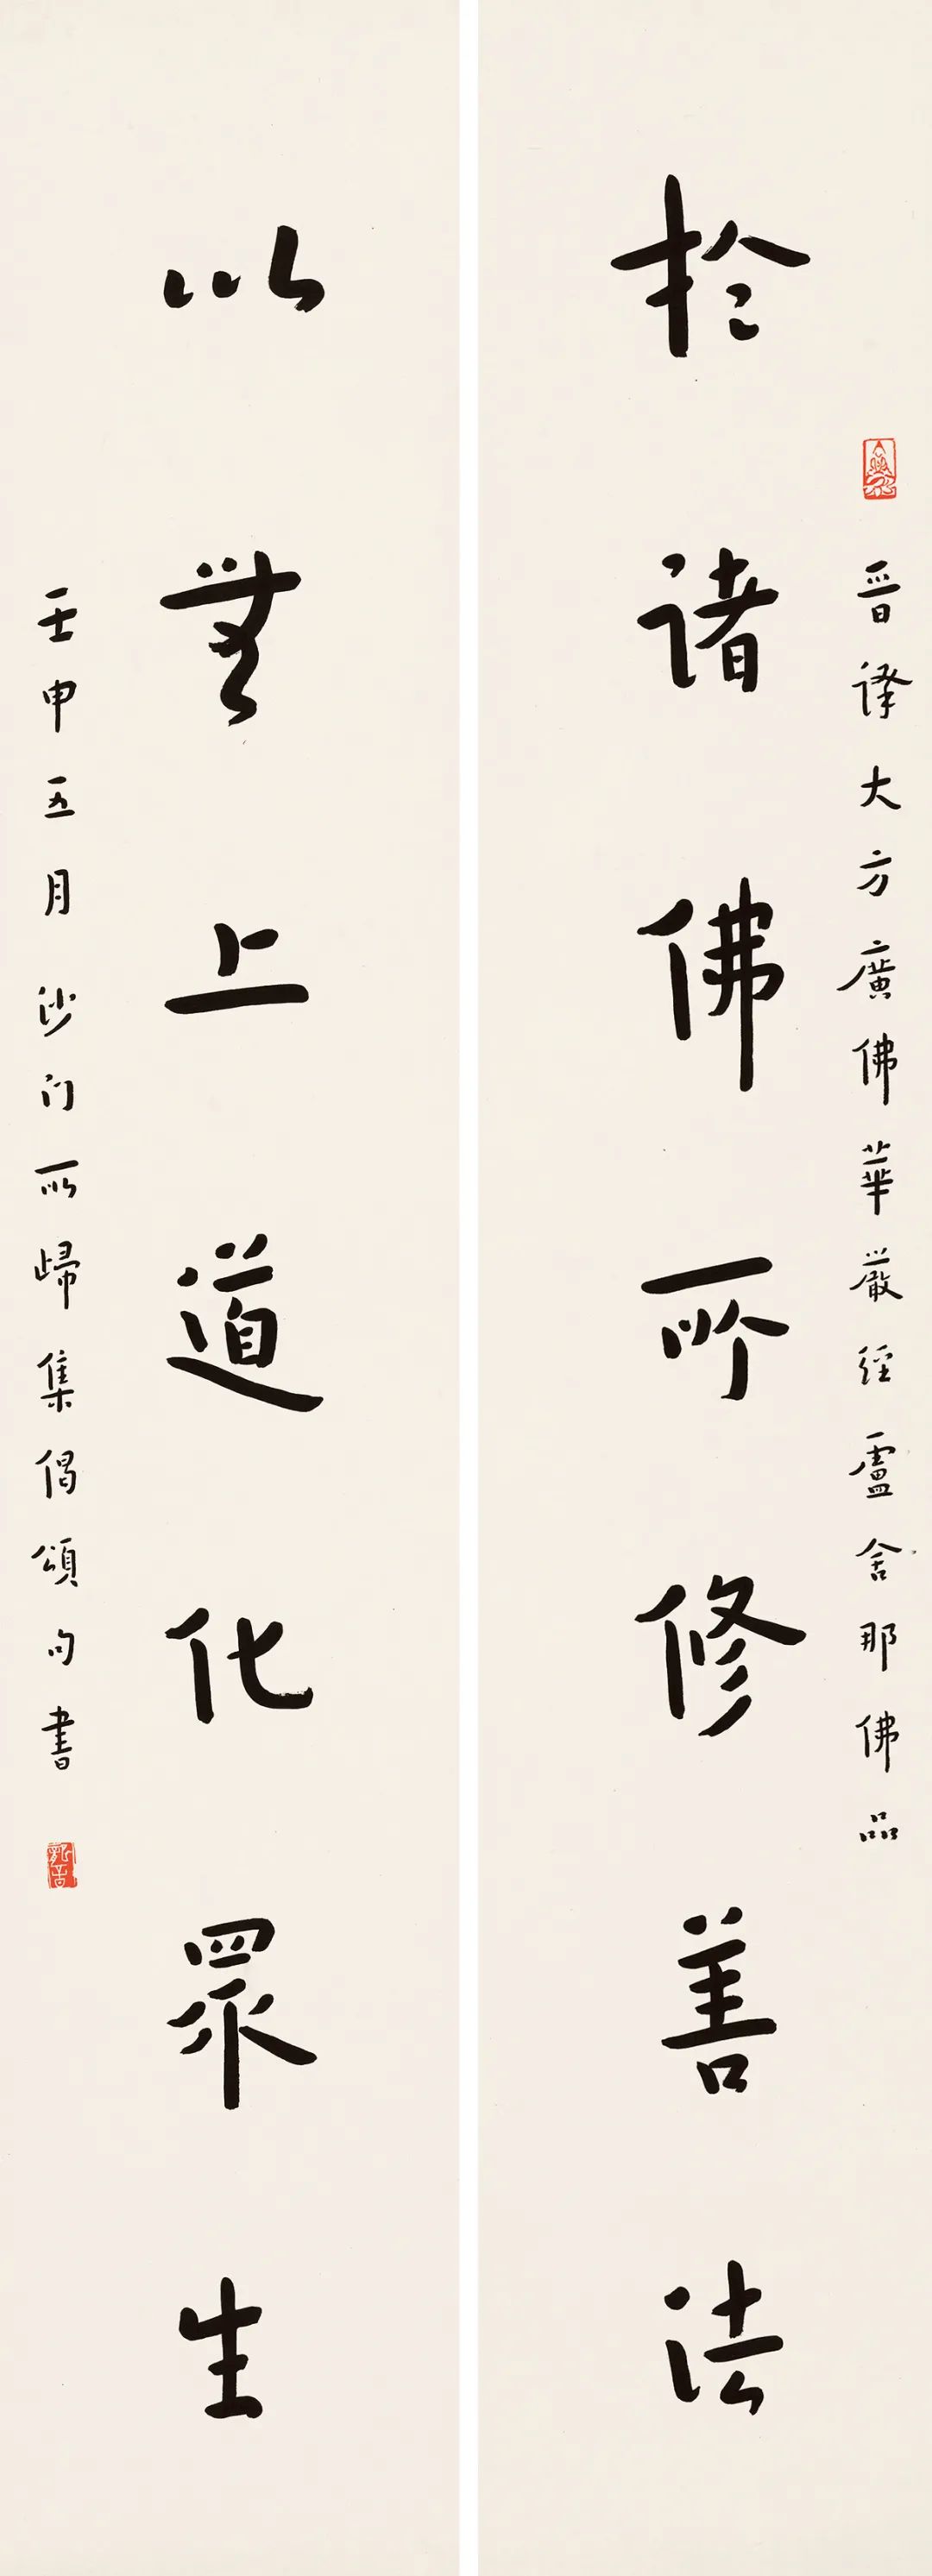 晉譯大方廣佛華嚴經盧舍那佛品
於諸佛所修善法
以無上道化眾生
壬申五月沙门所歸集偈頌句書